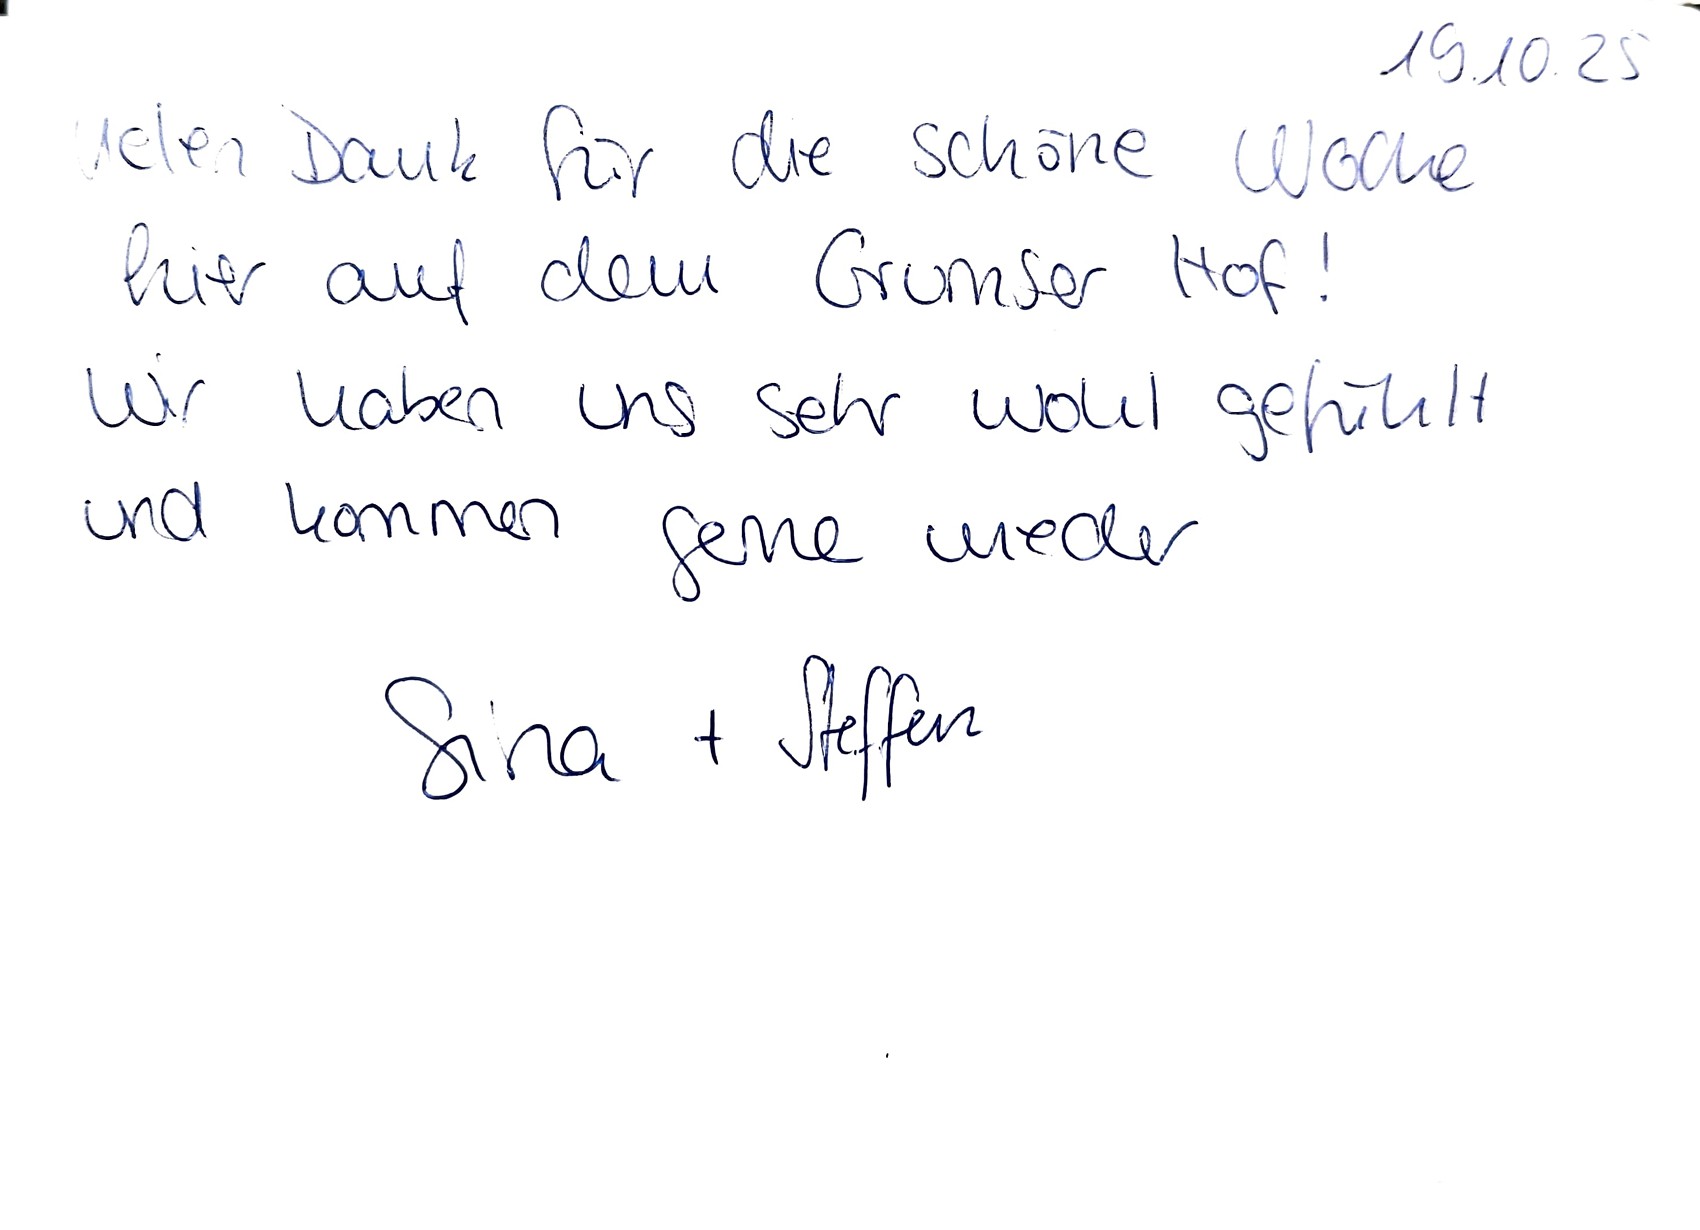 19.10.25
Vielen Dank für die schöne Woche
hier auf dem Grumser Hof!
Wir haben uns sehr wohl gefühlt
und kommen gerne wieder
Sina + Steffen